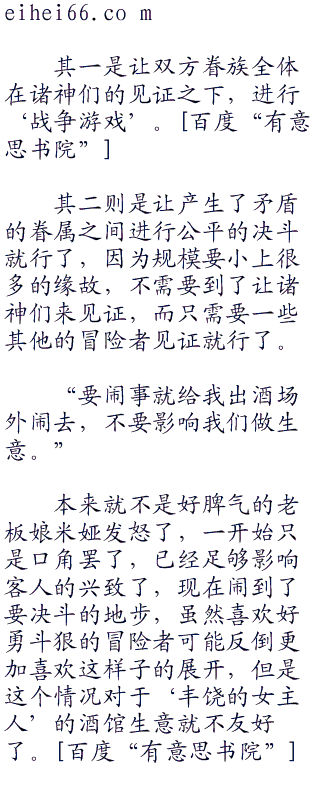 eihei66.co m
其一是让双方眷族全体
在诸神们的见证之下，进行
‘战争游戏’。[百度“有意
思书院”]
其二则是让产生了矛盾
的眷属之间进行公平的决斗
就行了，因为规模要小上很
多的缘故，不需要到了让诸
神们来见证，而只需要一些
其他的冒险者见证就行了。
“要闹事就给我出酒场
外闹去，不要影响我们做生
意。”
本来就不是好脾气的老
板娘米娅发怒了，一开始只
是口角罢了，已经足够影响
客人的兴致了，现在闹到了
要决斗的地步，虽然喜欢好
勇斗狠的冒险者可能反倒更
加喜欢这样子的展开，但是
这个情况对于‘丰饶的女主
人’的酒馆生意就不友好
了。[百度“有意思书院”]